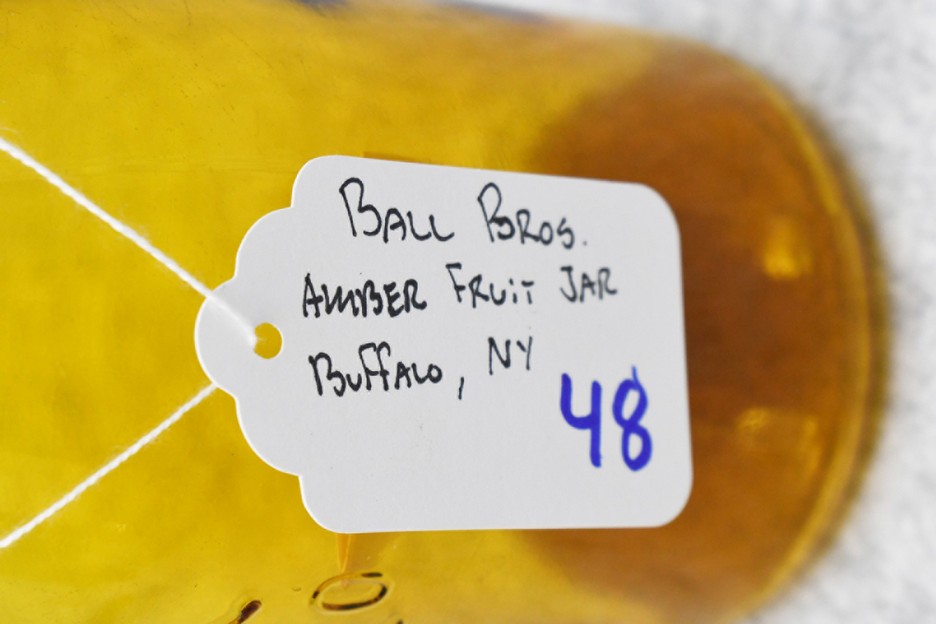 Ball Bros.
Amber Fruit Jar
Buffalo, NY
48